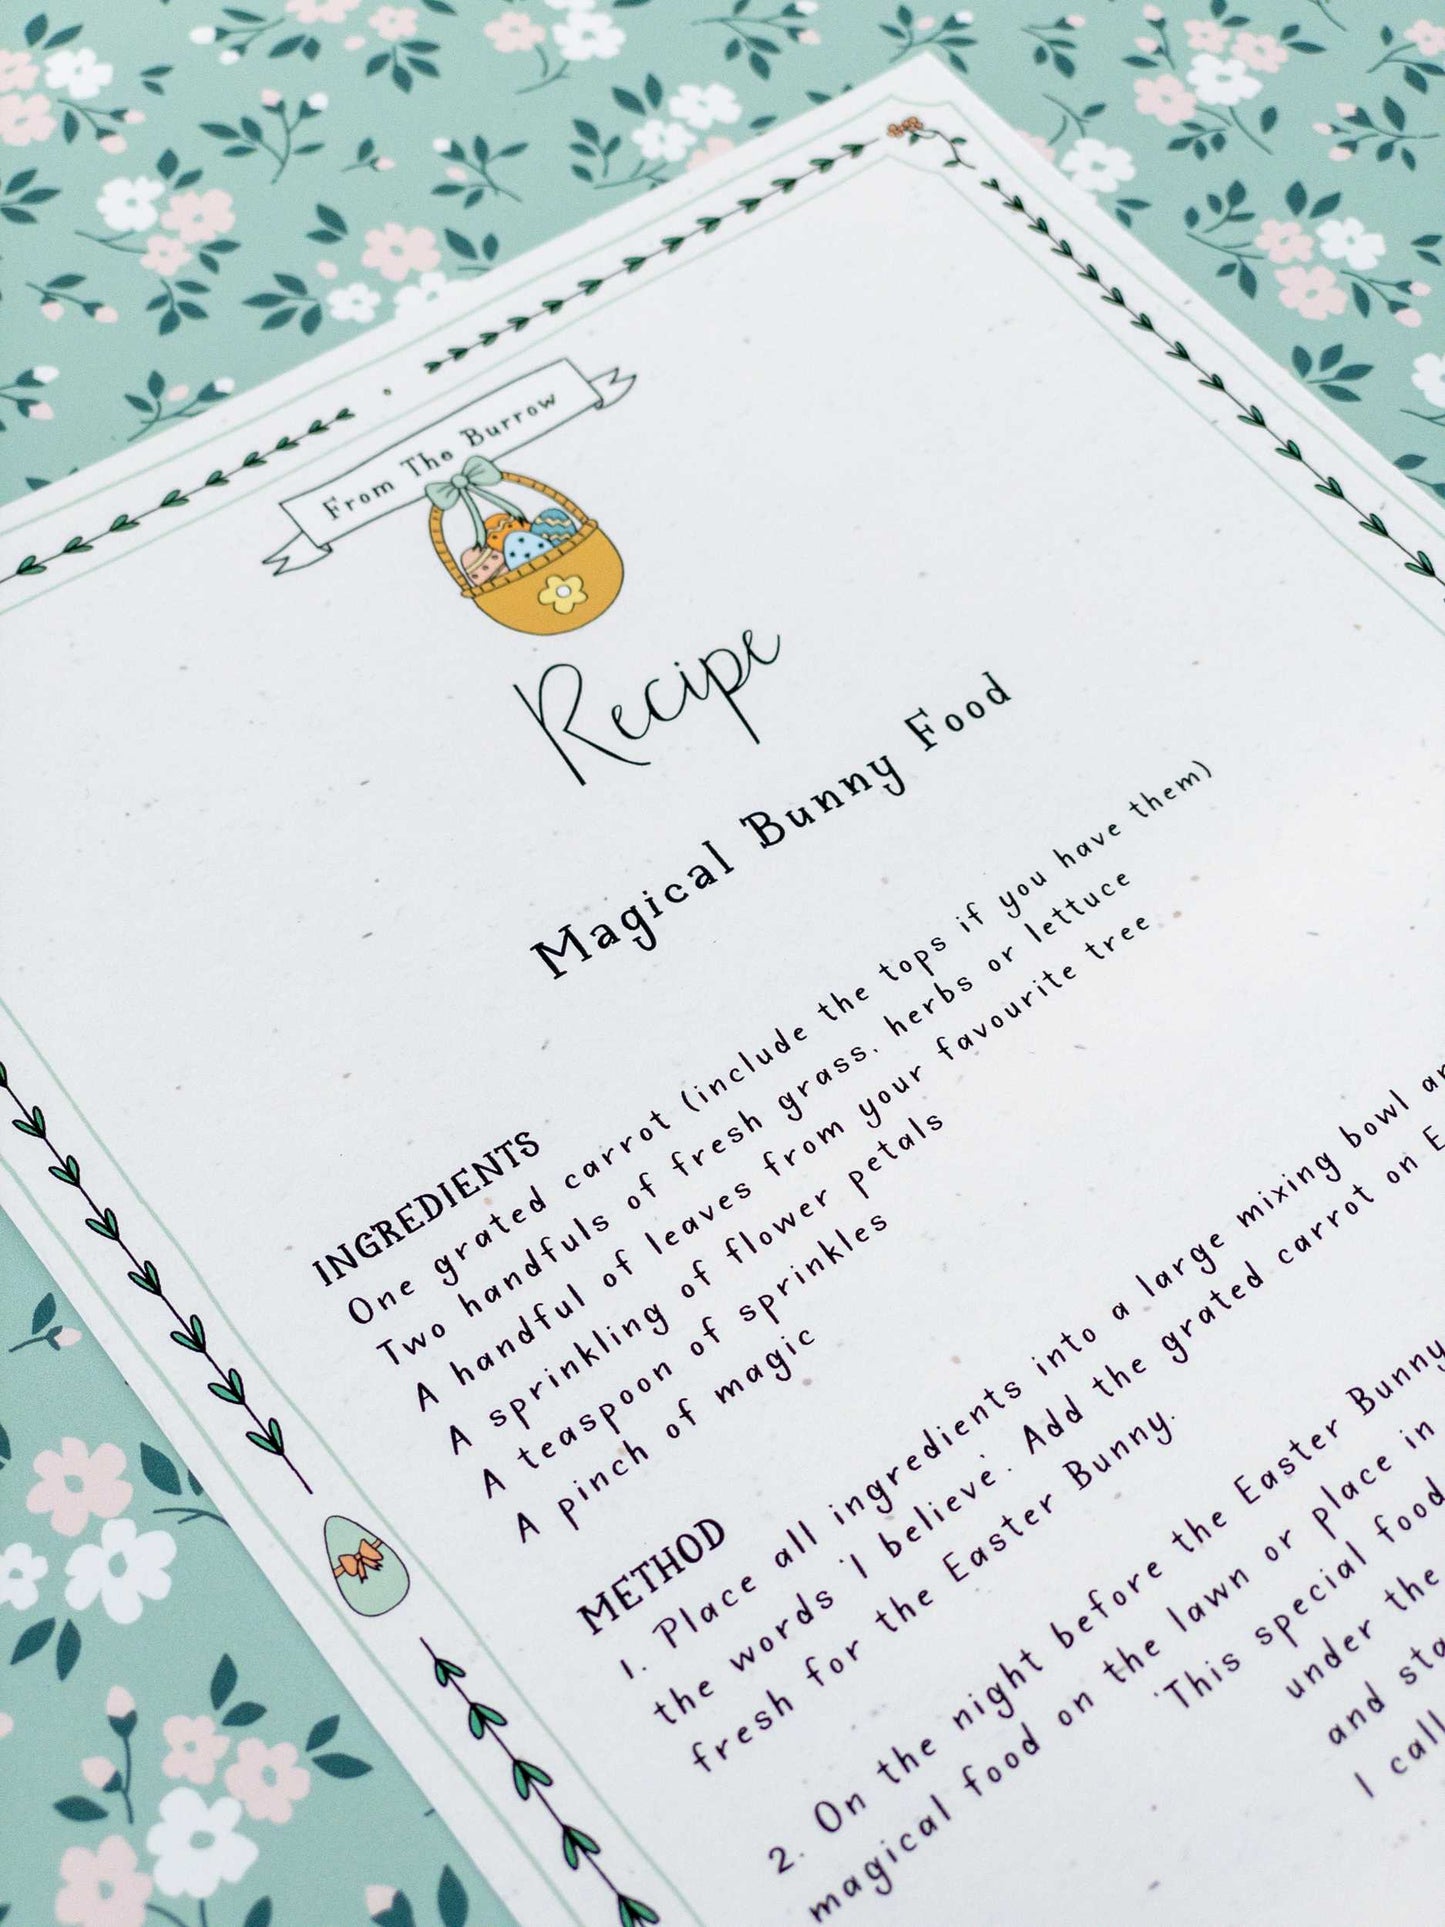 From The Burrow
Recipe
Magical Bunny Food
INGREDIENTS
One grated carrot (include the tops if you have them)
Two handfuls of fresh grass, herbs or lettuce
A handful of leaves from your favourite tree
A sprinkling of flower petals
A teaspoon of sprinkles
A pinch of magic
METHOD
1. Place all ingredients into a large mixing bowl
the words 'I believe'. Add the grated carrot on
fresh for the Easter Bunny.
2. On the night before the Easter Bunny
magical food on the lawn or place in
'This special food
under the
and
I call